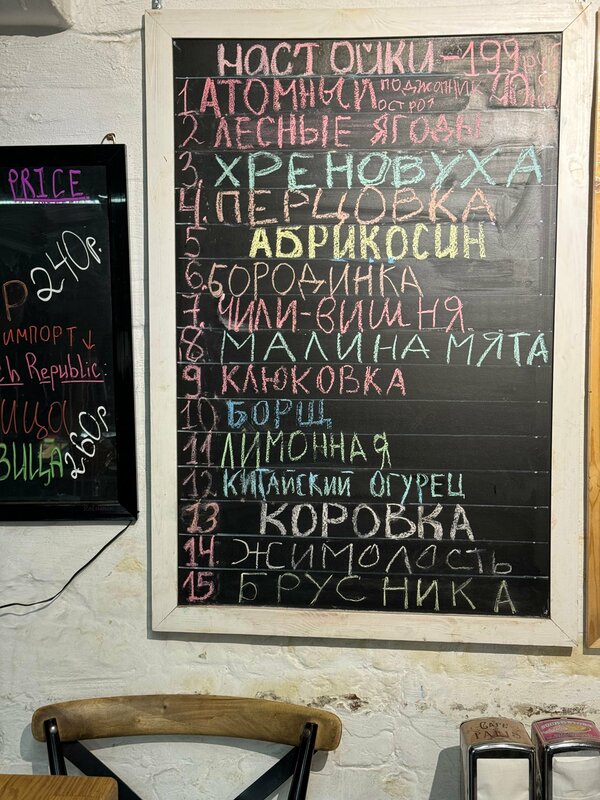 PRICE
240р.
ИМПОРТ ↓
Republic
260р
НАСТОЙКИ - 199 руб
1 АТОМНЫЙ
ПОДЖОПНИК
ОСТРО↑
2 ЛЕСНЫЕ ЯГОДЫ
3. ХРЕНОВУХА
4. ПЕРЦОВКА
5 АБРИКОСИН
6. БОРОДИНКА
7. ЧИЛИ-ВИШНЯ
8 МАЛИНА МЯТА
9 КЛЮКОВКА
10 БОРЩ
11 ЛИМОННАЯ
12 КИТАЙСКИЙ ОГУРЕЦ
13 КОРОВКА
14 ЖИМОЛОСТЬ
15 БРУСНИКА